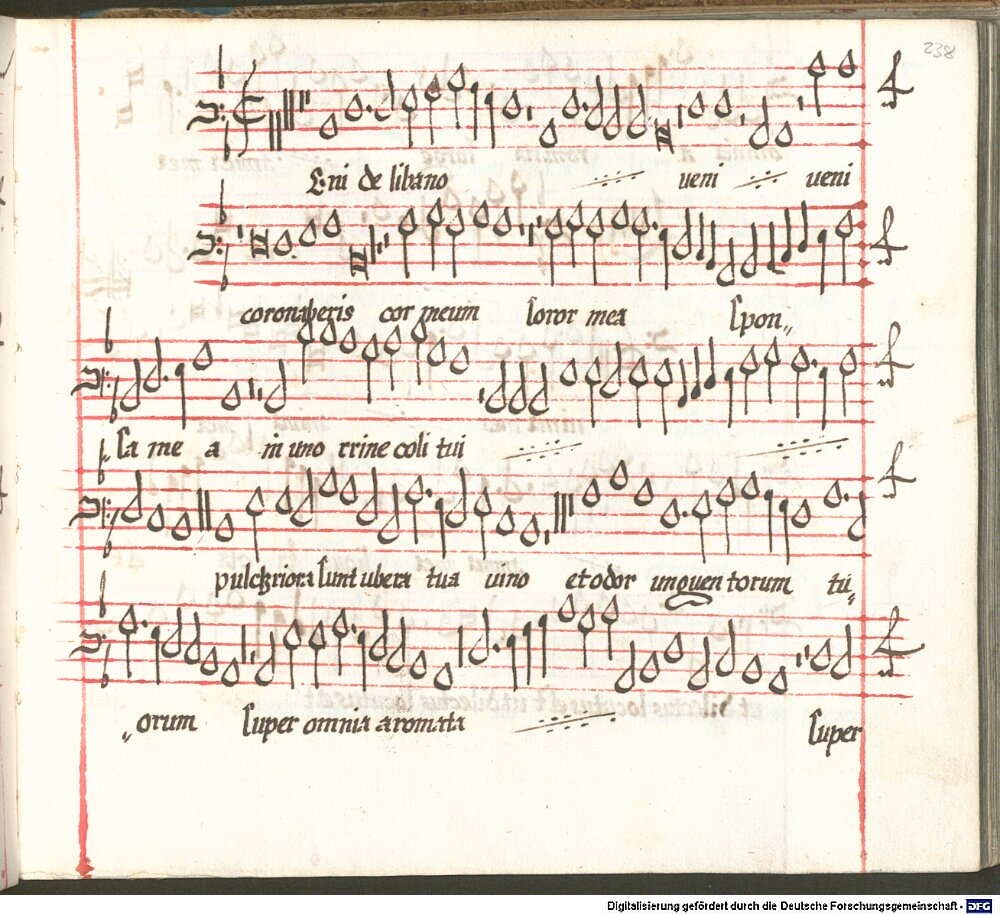 238
Eni de libano ueni ueni
coronaberis cor meum soror mea spon„
sa me a in uno crine coli tui
pulchriora sunt ubera tua uino et odor unguen torum tu„
„orum super omnia aromata super
Digitalisierung gefördert durch die Deutsche Forschungsgemeinschaft - DFG